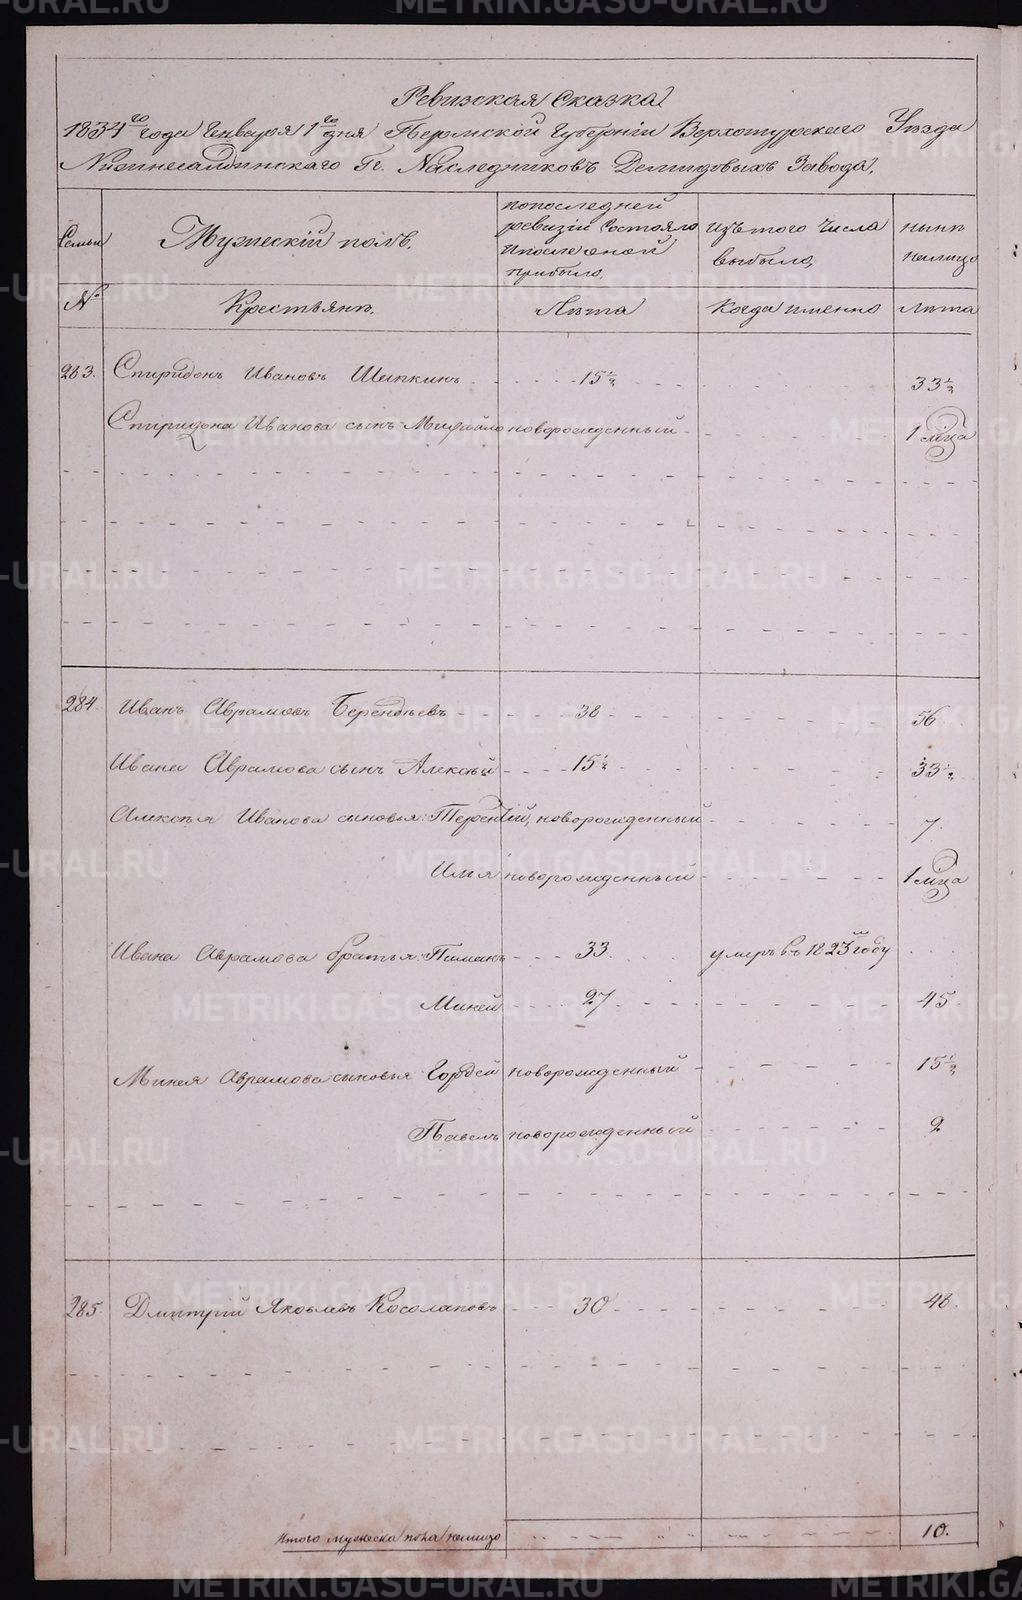 Ревизская Сказка
1834го года Генваря 1го дня Пермской Губернiи Верхотурскаго Уезда
Нижнесалдинскаго Гг. Наследниковъ Демидовыхъ Завода,
Семьи
Мужескiй полъ.
попоследней ревизiи Состояло и после оной прибыло,
изътого числа выбыло,
ныне налицо
№
Крестьяне.
Лета
Когда именно
Лета
283. Спиридонъ Ивановъ Шипкинъ 15½ 33½
Спиридона Иванова сынъ Михайло новорожденный 1 мца
284. Иванъ Аврамовъ Берендеевъ 38 56
Ивана Аврамова сынъ Алексей 15½ 33½
Алексея Иванова сыновья: Терентiй, новорожденный 7.
Илья новорожденный 1 мца
Ивана Аврамова братья: Пиманъ 33. умеръ въ 1823м году
Миней 27 45.
Минея Аврамова сыновья Гордей новорожденный 15½
Павелъ новорожденный 2
285. Дмитрiй Яковлевъ Косолаповъ 30 48.
Итого мужеска пола налицо 10.
METRIKI.GASO-URAL.RU